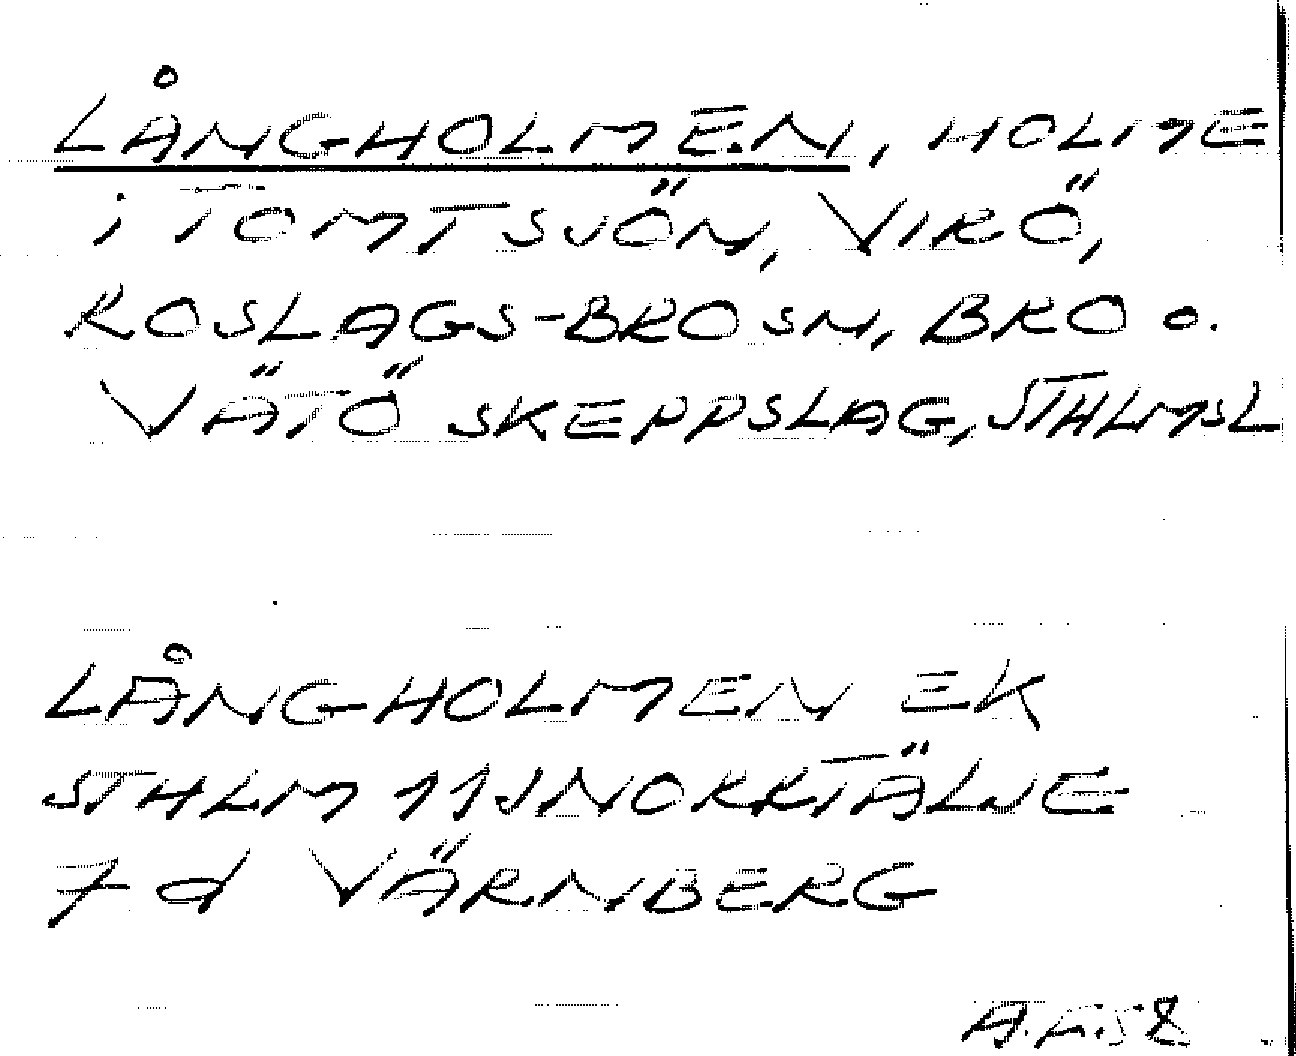 LÅNGHOLMEN, HOLME
i TOMTSJÖN, VIRÖ,
ROSLAGS-BROSN, BRO o.
VÄTÖ SKEPPSLAG, STHLMSL
LÅNGHOLMEN EK
STHLM 11J NORRTÄLJE
7d VÄRNBERG
A.F. 58